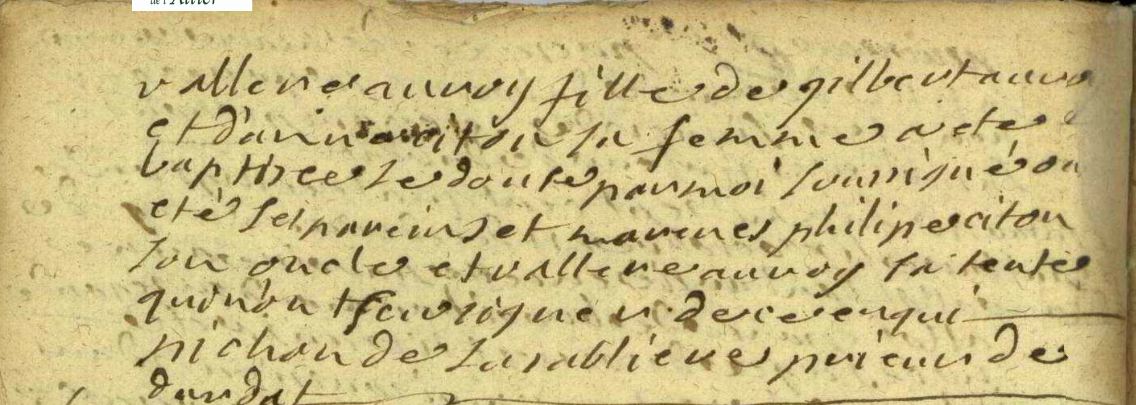 de l'Allier
vallerie auroy fille de gilbert auro
et d'anne citon sa femme a ete
baptizee le douze par moi soussigné on
eté ses pareins et marenes philipe citon
son oncle et vallerie auroy sa tente
qui n'ont sceu signer de ce enqui
pichon de la sabliere prieur de
durdat